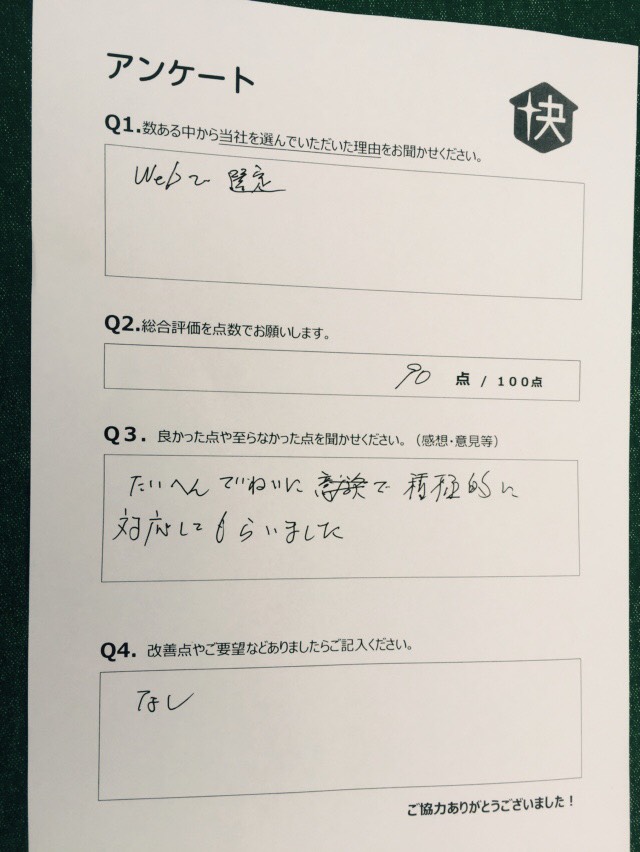 アンケート
快
Q1.数ある中から当社を選んでいただいた理由をお聞かせください。
Webで選定
Q2.総合評価を点数でお願いします。
90 点 / 100点
Q3. 良かった点や至らなかった点を聞かせください。（感想・意見等）
たいへんていねいに で積極的に
対応してもらいました
Q4. 改善点やご要望などありましたらご記入ください。
なし
ご協力ありがとうございました！